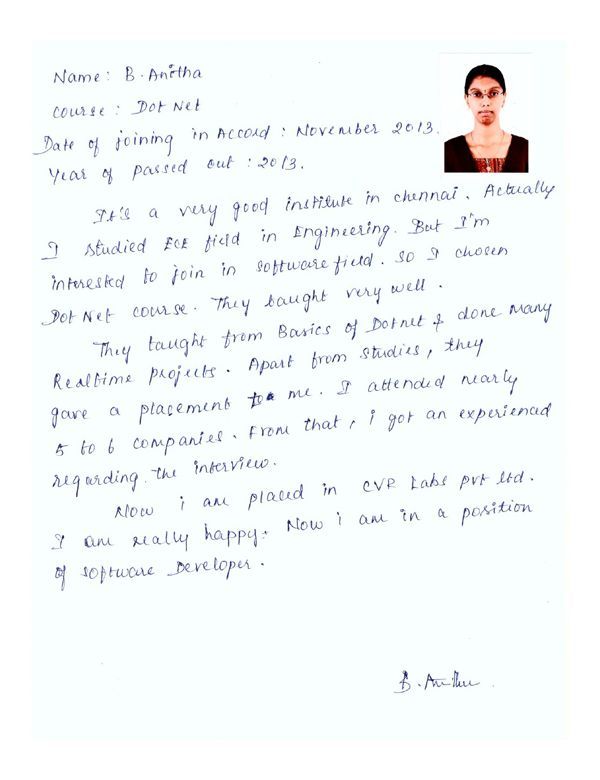 Name: B. Anitha
Course: Dot Net
Date of joining in Accord: November 2013.
Year of passed out: 2013.
It's a very good institute in chennai. Actually
I studied ECE field in Engineering. But I'm
interested to join in software field. So I chosen
Dot Net course. They taught very well.
They taught from Basics of Dotnet & done many
Realtime projects. Apart from studies, they
gave a placement to me. I attended nearly
5 to 6 companies. From that, i got an experienced
regarding the interview.
Now i am placed in CVR Labs pvt ltd.
I am really happy. Now i am in a position
of software Developer.
B. Anitha